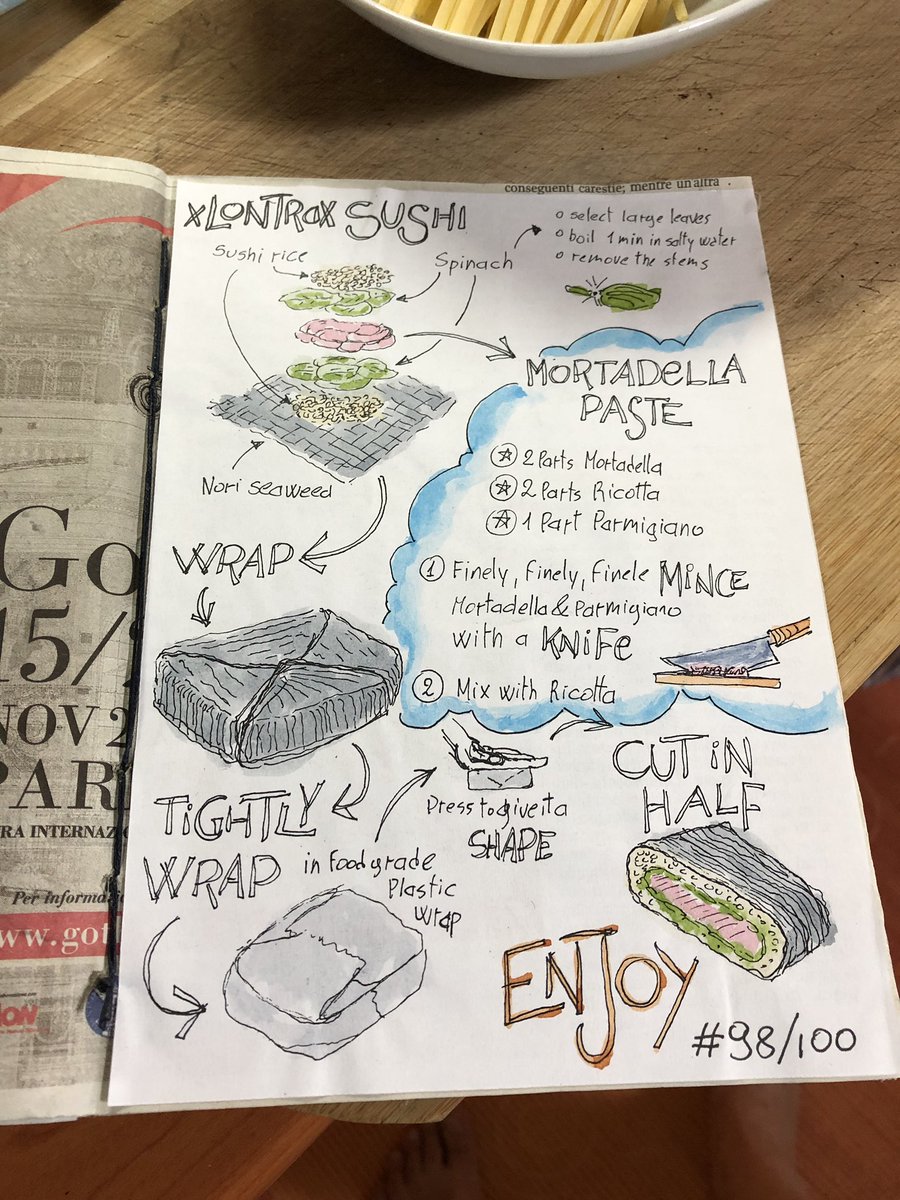 conseguenti carestie; mentre un'altra
xLONTRax SUSHI
Sushi rice
Spinach
o select large leaves
o boil 1 min in salty water
o remove the stems
Nori seaweed
MORTADELLA
PASTE
2 Parts Mortadella
2 Parts Ricotta
1 Part Parmigiano
1 Finely, Finely, Finele MINCE
Mortadella & Parmigiano
with a KNIFE
2 Mix with Ricotta
WRAP
TIGHTLY
WRAP in Food grade
Plastic
wrap
Press to give it a
SHAPE
CUT IN
HALF
ENJOY
#98/100
Go
15/
NOV 2
PAR
Per informa
ww.got